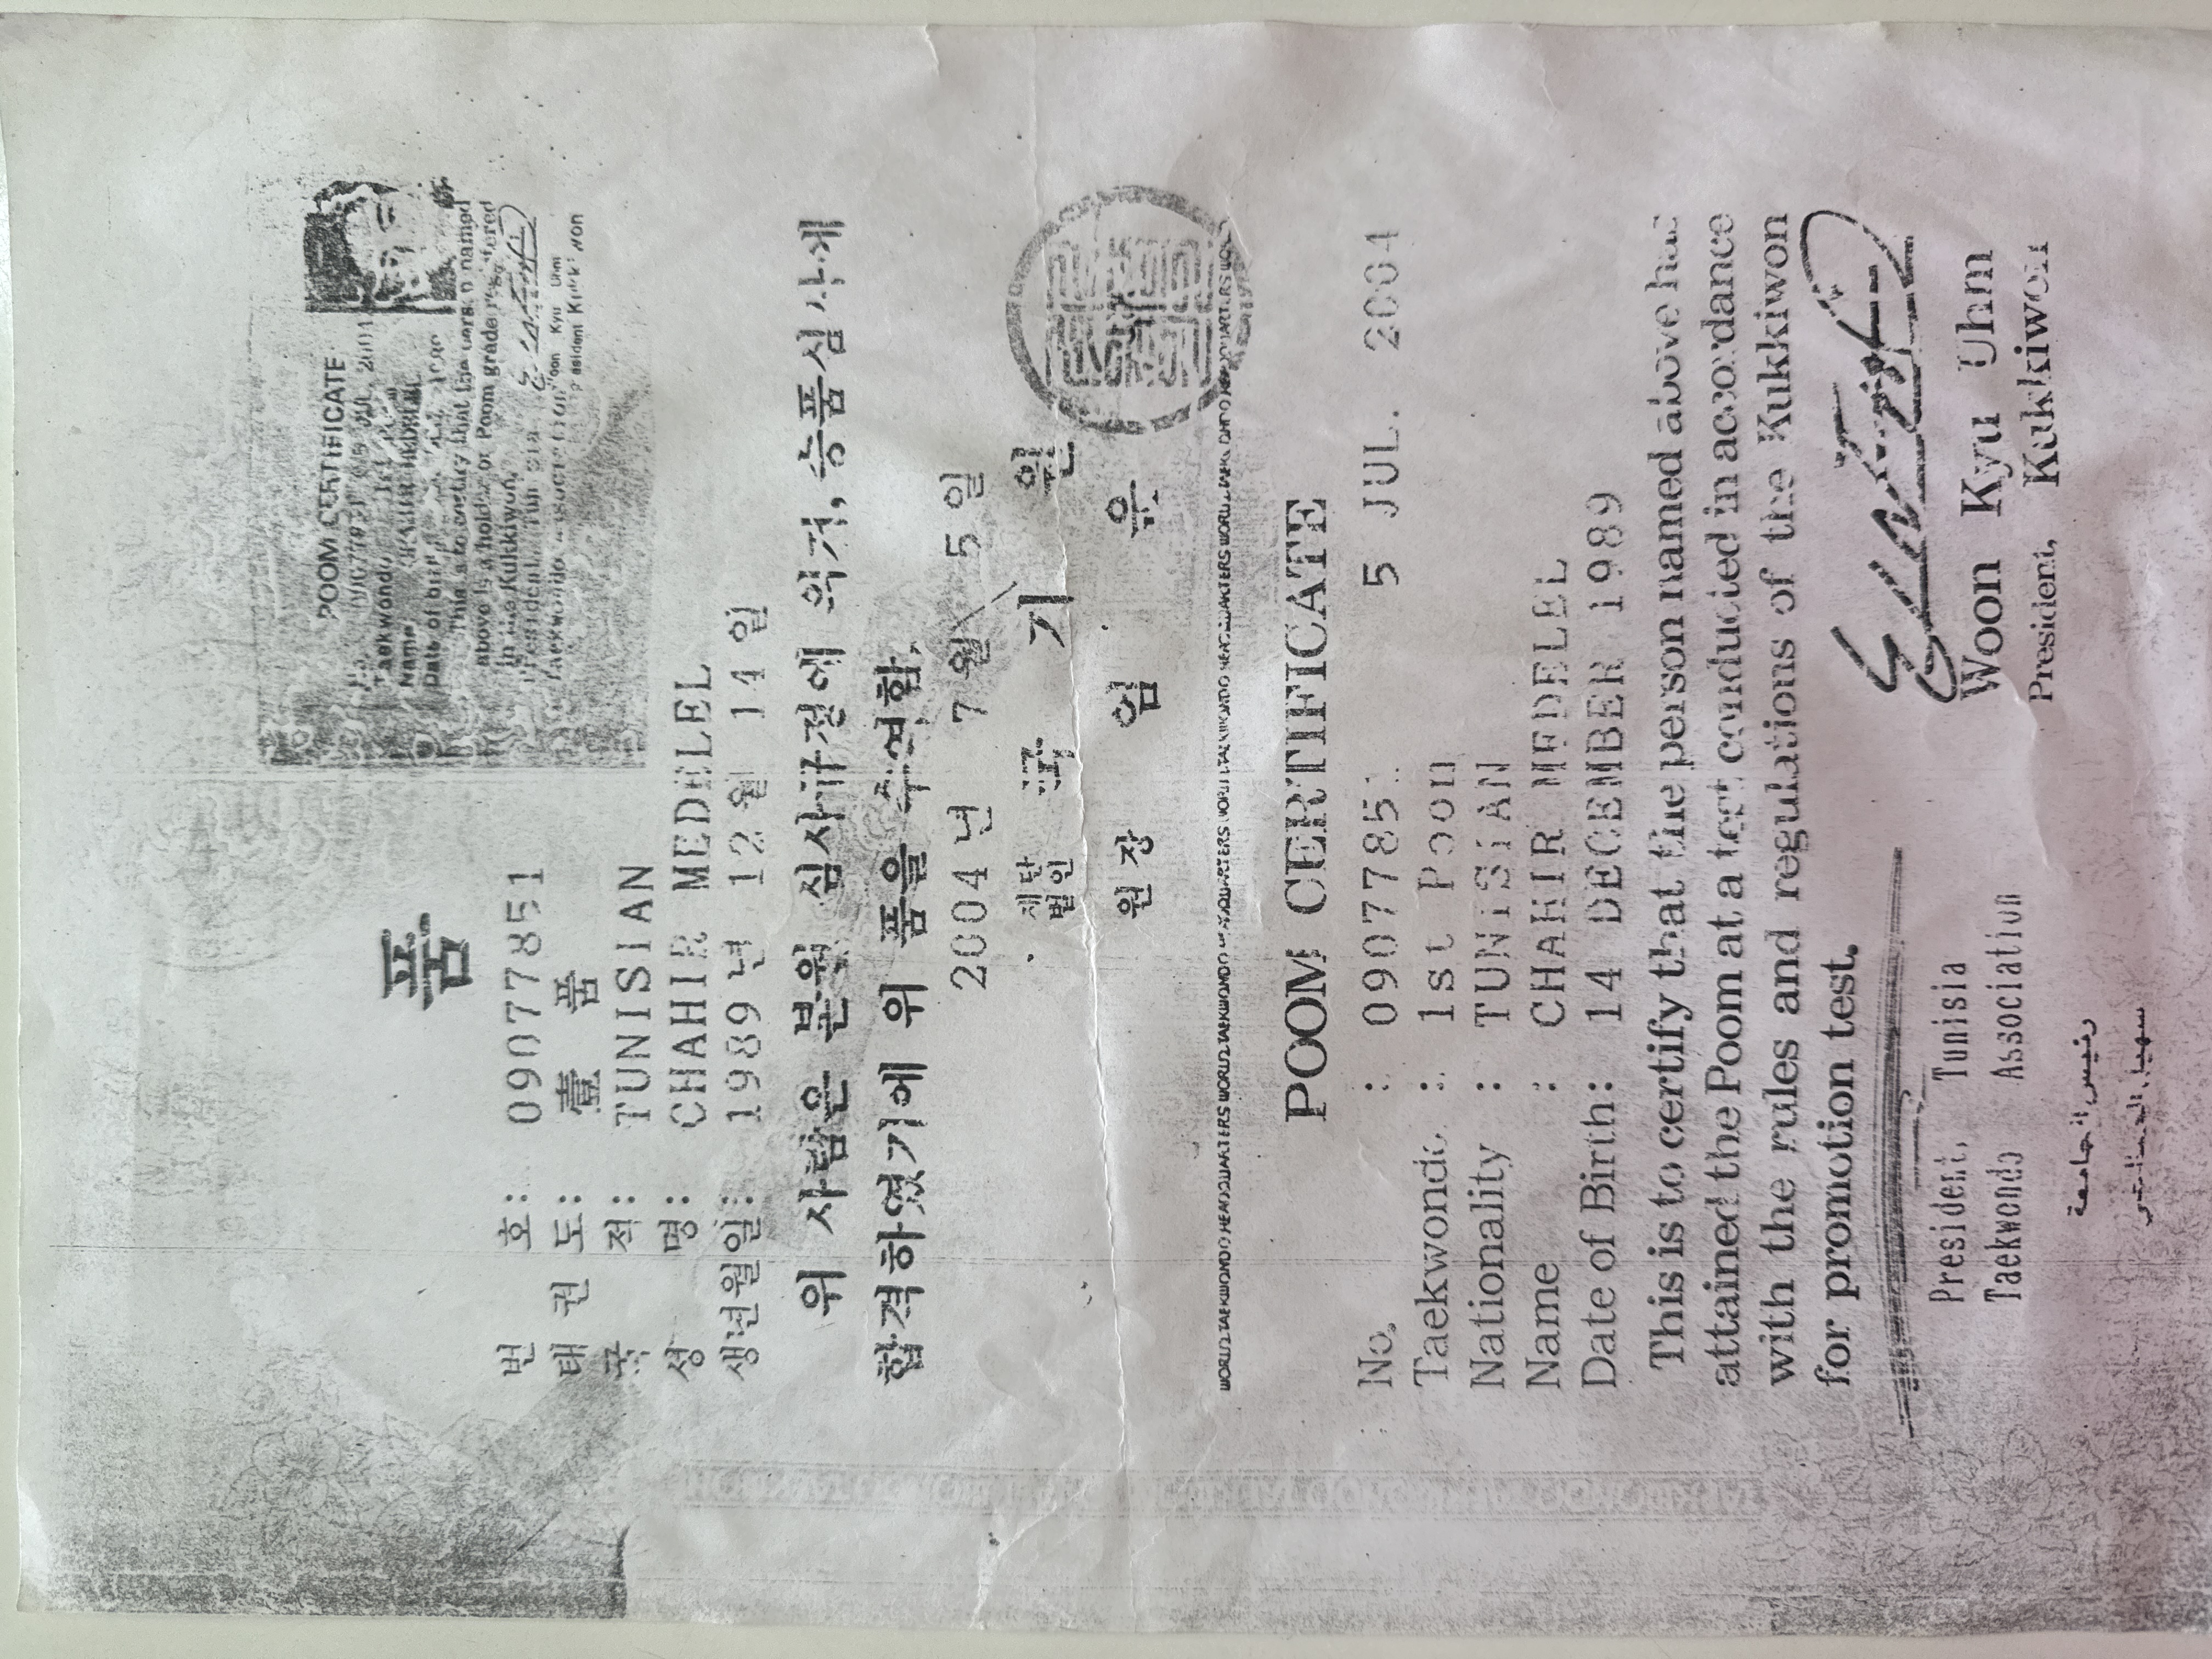 POOM CERTIFICATE
Taekwondo
Name
Date of
This is to certify that the person named
above is a holder of Poom grade registered
in the Kukkiwon.
Woon Kyu Uhm
President Kukkiwon
품
번 호: 09077851
태 권 도: 壹 품
국 적: TUNISIAN
성 명: CHAHIR MEDELEL
생년월일: 1989 년 12 월 14 일
위 사람은 본원 심사규정에 의거, 승품심사에
합격하였기에 위 품을 수여함.
2004 년 7 월 5 일
재단
법인 국 기 원
원 장 엄 운
WORLD TAEKWONDO HEADQUARTERS WORLD TAEKWONDO HEADQUARTERS WORLD TAEKWONDO HEADQUARTERS WORLD TAEKWONDO HEADQUARTERS
POOM CERTIFICATE
5 JUL. 2004
No. : 09077851
Taekwondo : 1st Poom
Nationality : TUNISIAN
Name : CHAHIR MEDELEL
Date of Birth : 14 DECEMBER 1989
This is to certify that the person named above has
attained the Poom at a test conducted in accordance
with the rules and regulations of the Kukkiwon
for promotion test.
President, Tunisia
Taekwondo Association
رئيس الجامعة
Woon Kyu Uhm
President, Kukkiwon